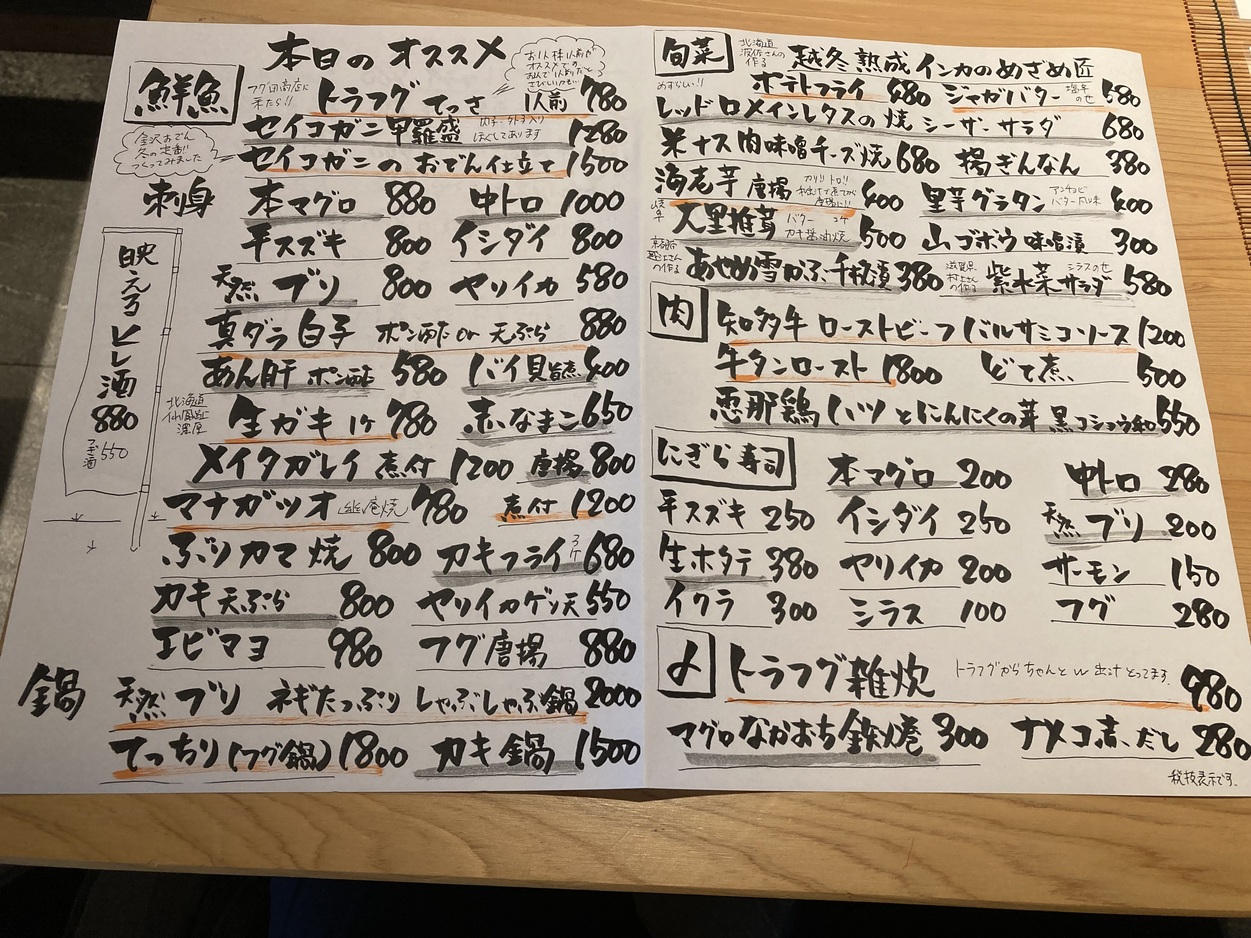 本日のオススメ
鮮魚
お1人様1人前が
オススメです
フグ田商店に
来たら!!
トラフグ てっさ 1人前 780
セイコガニ甲羅盛 内子・外子入り ほぐしてあります 1280
金沢おでん
冬の定番!!
つくってみました
セイコガニのおでん仕立て 1500
刺身
本マグロ 880 中トロ 1000
平スズキ 800 イシダイ 800
天然 ブリ 800 ヤリイカ 580
真ダラ白子 ポン酢 or 天ぷら 880
あん肝 ポン酢 580 バイ貝旨煮 400
北海道
仙鳳趾
生ガキ 1ケ 780 赤なまこ 650
メイタガレイ 煮付 1200 唐揚 800
マナガツオ 幽庵焼 980 煮付 1200
ぶりカマ焼 800 カキフライ 3ケ 680
カキ天ぷら 800 ヤリイカゲソ天 550
エビマヨ 980 フグ唐揚 880
映えるヒレ酒
880
つぎ酒 550
鍋
天然 ブリ ネギたっぷり しゃぶしゃぶ鍋 2000
てっちり(フグ鍋) 1800 カキ鍋 1500
旬菜
北海道
の作る
越冬熟成 インカのめざめ 匠
めずらしい!!
ポテトフライ 480 ジャガバター 塩辛のせ 580
レッドロメインレタスの焼シーザーサラダ 680
米ナス肉味噌チーズ焼 680 揚ぎんなん 380
海老芋 唐揚 400 里芋グラタン アンチョビバター風味 400
岐阜
大黒椎茸 バター or カキ醤油焼 500 山ゴボウ味噌漬 300
の作る
あやめ雪かぶ千枚漬 380
滋賀県
村上さん
の作る
紫水菜サラダ シラスのせ 580
肉
知多牛 ローストビーフ バルサミコソース 1200
牛タンロースト 1800 どて煮 500
恵那鶏 ハツとにんにくの芽 黒コショウ和 550
にぎら寿司
本マグロ 200 中トロ 280
平スズキ 250 イシダイ 250 天然 ブリ 200
生ホタテ 380 ヤリイカ 200 サーモン 150
イクラ 300 シラス 100 フグ 280
〆
トラフグ雑炊 トラフグからちゃんとw出汁とってます。 980
マグロなかおち鉄火巻 300 ナメコ赤だし 280
税抜表示です。